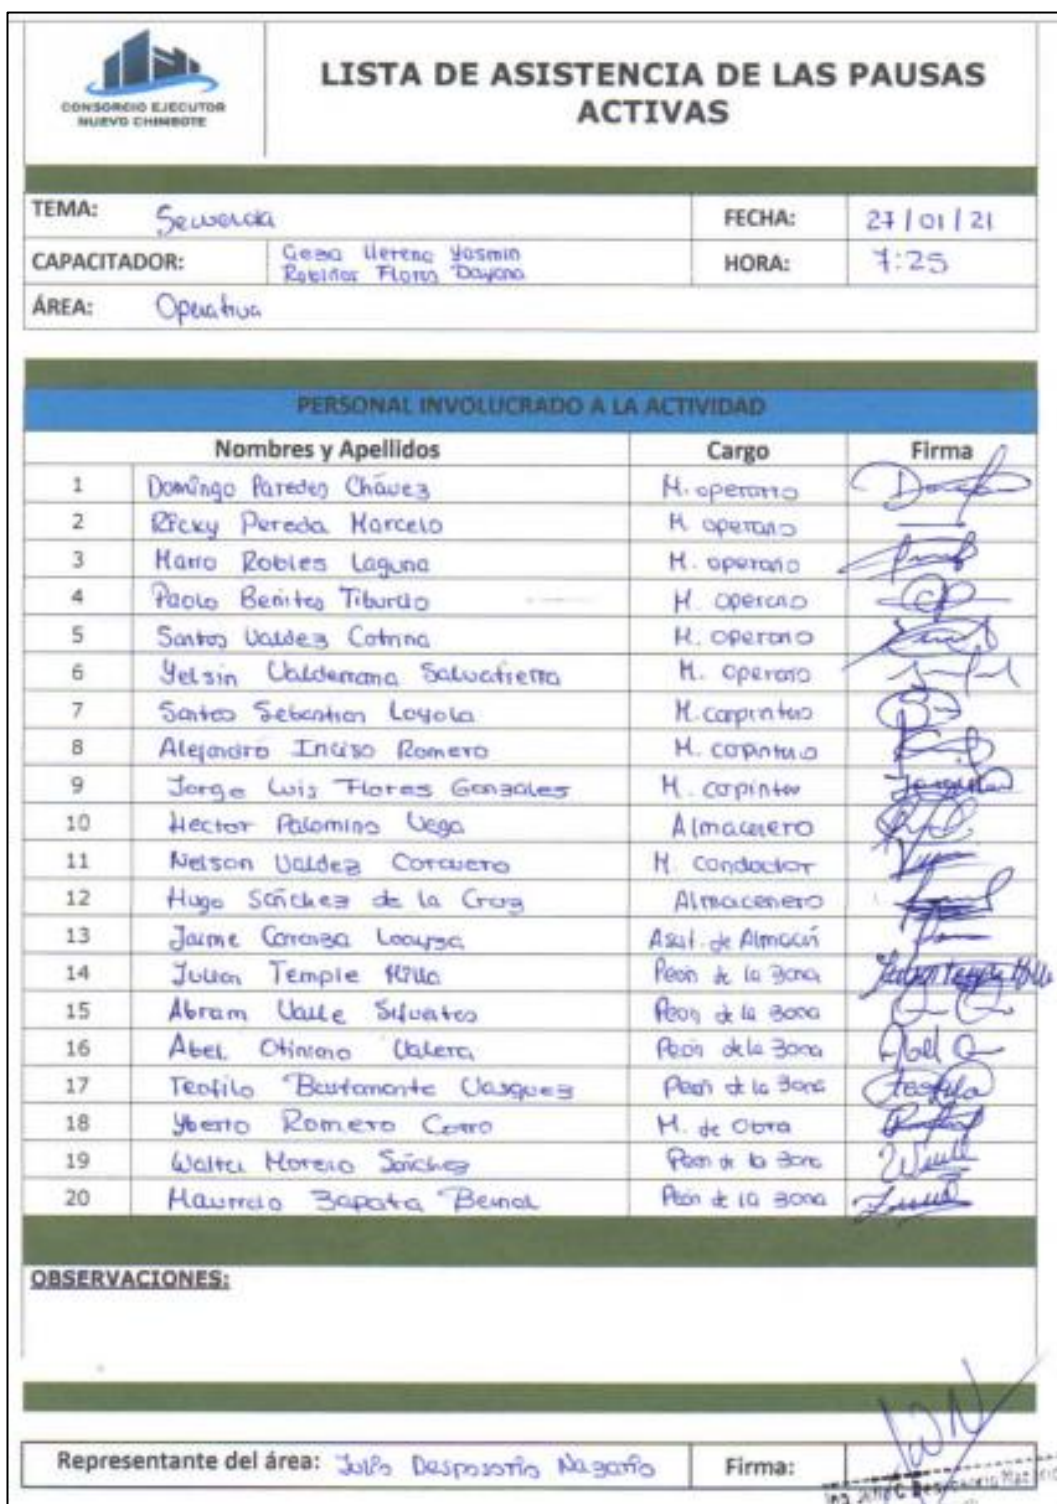 CONSORCIO EJECUTOR
NUEVO CHIMBOTE
LISTA DE ASISTENCIA DE LAS PAUSAS
ACTIVAS
TEMA: FECHA: 27 / 01 / 21
CAPACITADOR: Yasmin HORA: 7:25
Robiños Flores Dayana
ÁREA: Operativa
PERSONAL INVOLUCRADO A LA ACTIVIDAD
Nombres y Apellidos Cargo Firma
1 Domingo Paredes Chávez M. operario
2 Ricky Pereda Marcelo M operario
3 Mario Robles Laguna M. operario
4 Paolo Benites Tiburcio M. operario
5 Santos Valdez Cotrina M. operario
6 Yelsin Valderrama Salvatierra M. operario
7 Santos Sebastian Loyola M. carpintero
8 Alejandro Inciso Romero M. carpintero
9 Jorge Luis Flores Gonzales M. carpintero
10 Hector Palomino Vega Almacenero
11 Nelson Valdez M. conductor
12 Hugo Sánchez de la Cruz Almacenero
13 Jaime Asist. de Almacén
14 Julian Temple Milla Peón de la zona
15 Abram Valle Peón de la zona
16 Abel Otiniano Valera Peón de la zona
17 Teofilo Bustamante Vasquez Peón de la zona
18 Romero M. de Obra
19 Walter Moreno Sánchez Peón de la zona
20 Mauricio Zapata Bernal Peón de la zona
OBSERVACIONES:
Representante del área: Julio Desposorio Nazario Firma: